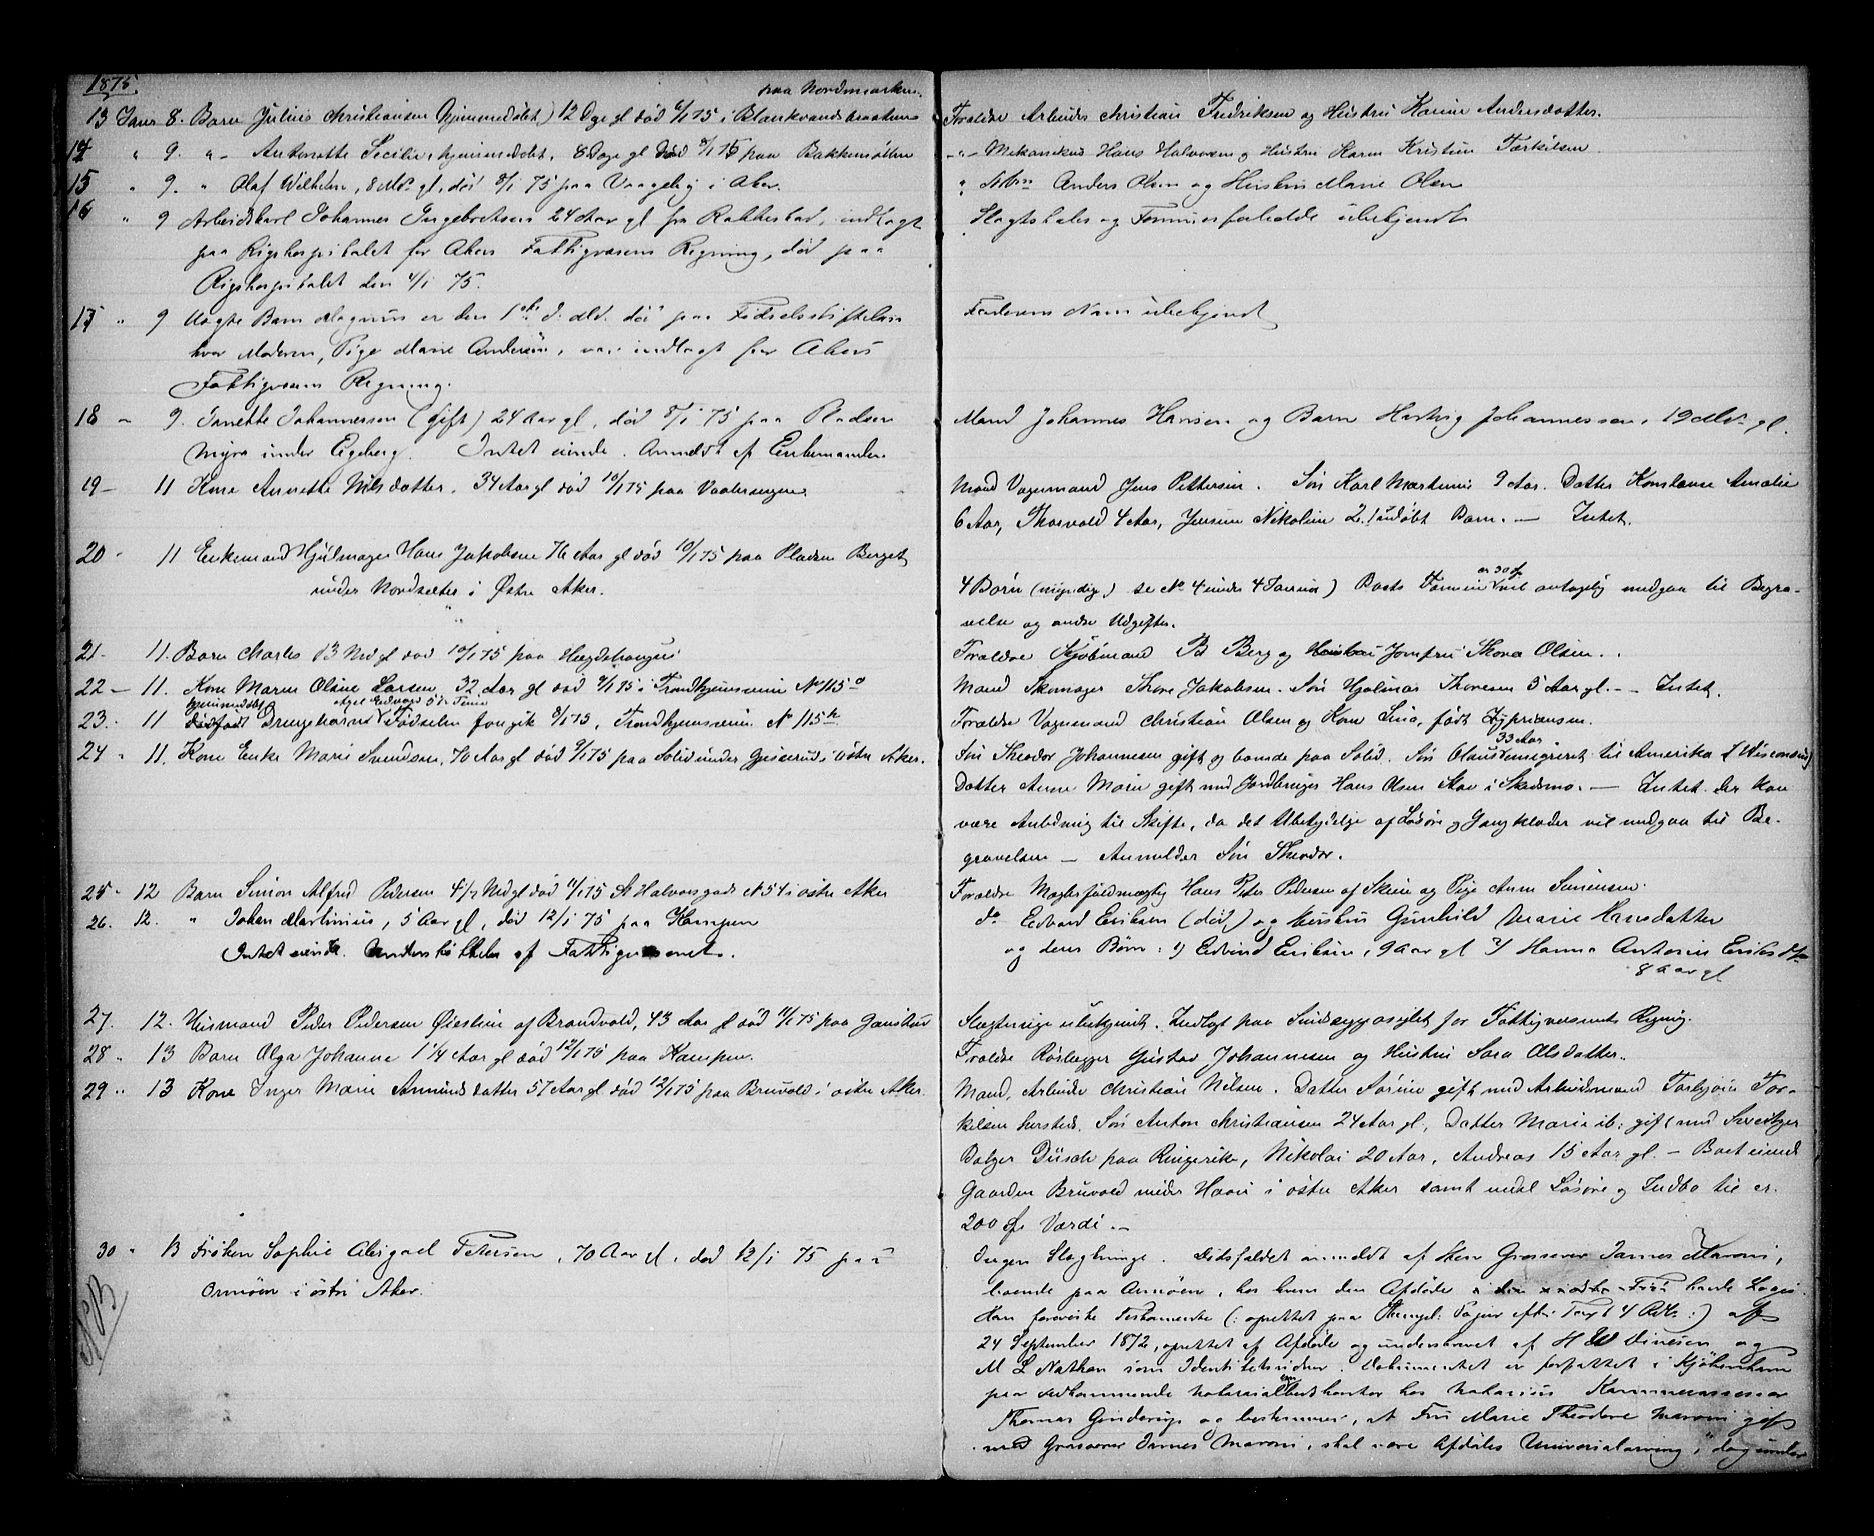 1875.
paa Nordmarken.
13 Janr 8. Barn Julius Christiansen (hjemmedøbt) 12 Dage gl død 6/1 75 i Blankvandsbraaten
Forældre Arbeider Christian Fredriksen og Hustru Karine Andersdatter.
14 " 9. " - Antonette Secilie, hjemmedøbt, 8 Dage gl død 8/1 75 paa Bakkemølben
- " - Mekanikus Hans Halvorsen og Hustru Karen Kristine Terkelsen
15 " 9. " Olaf Wilhelm, 8 Mdr gl, død 8/1 75 paa Vaagebig i Aker.
" Anders Olsen og Hustru Marie Olsen
16 " 9 Arbeidskarl Johannes Ingebretsen 24 Aar gl fra Rakkestad, indlagt
Slægtskabs og Formuesforholde ubekjendt
paa Rigshospitalet for Akers Fattigvæsens Regning, død paa
Rigshospitalet den 4/1 75.
17 " 9 Uægte Barn Magnus er den 1ste d. Md. død paa Fødselsstiftelsen
Faderens Navn ubekjendt
hvor Moderen, Pige Marie Andersen, var indlagt for Akers
Fattigvæsens Regning.
18 - 9. Janette Johannessen (gift) 24 Aar gl, død 8/1 75 paa Pladsen
Mand Johannes Hansen og Barn Hartvig Johannessen, 19 Mdr gl.
Myra under Egeberg. Intet eiende. Anmeldt af Enkemanden
19 - 11 Kone Annette Nilsdatter, 34 Aar gl død 10/1 75 paa Vaalerengen.
Mand Vognmand Jens Pettersen. Søn Karl Martinus 9 Aar. Datter Konstanse Amalie
6 Aar, Thorvald 4 Aar, Jensine Nikoline 2. 1 udøbt Barn. — Intet.
20 - 11 Enkemand Hjulmager Hans Jakobsen 76 Aar gl død 10/1 75 paa Pladsen Berget
under Nordsæter i Østre Aker.
4 Børn (myndige) se No 4 under 4 Januar) Boets Formue ca 30 Sp. vil antagelig medgaa til Begra-
velse og andre Udgifter.
21 - 11. Barn Charles 13 Mdr gl død 10/1 75 paa Hægdehaugen
Forældre Kjøbmand P Berg og Jomfru Thora Olsen.
22 — 11. Kone Maren Oline Larsen 32 Aar gl død 9/1 75 i Trondhjemsveien No 115 a
Mand Skomager Thore Jakobsen. Søn Hjalmar Thoresen 5 Aar gl. - Intet.
hjemmedøbt Axel Edvard 5 Timer
23. - 11 dødfødt Drengebarn Fødselen foregik 8/1 75, Trondhjemsveien No 115 b
Forældre Vognmand Christian Olsen og Kone Lina, født Zypriansen.
24 " 11. Kone Enke Marie Svendsen, 70 Aar gl død 9/1 75 paa Solid under i østre Aker.
33 Aar
Søn Theodor Johannesen gift og boende paa Solid. Søn Olaus emigreret til Amerika (Wisconsin)
Datter Anne Marie gift med Jordbruger Hans Olsen Skov i Skedsmo. — Intet der kan
være Anledning til Skifte, da det Ubetydelige af Løsøre og Gangklæder vil medgaa til Be-
gravelsen — Anmelder Søn Theodor.
25 " 12 Barn Simon Alfred Pedersen 4 1/2 Mdr gl død 11/1 75 St Halvorsgade No 54 i østre Aker
Forældre Maglerfuldmægtig Hans Peter Pedersen af Skien og Pige Anne Simensen.
26. 12. " Johan Martinius, 5 Aar gl, død 12/1 75 paa Kampen
do Edvard Eriksen (død) og Hustru Gunhild Marie Hansdatter
Intet eiende. Understøttelse af Fattigvæsenet.
og deres Børn: 1) Edvind Eriksen, 9 aar gl 2) Hanna Antonie Eriksdtr
8 aar gl
27. 12. Husmand Peder Pedersen Øiestuen af Brandvold, 43 Aar gl død 11/1 75 paa Gaustad
Slægtninge ubekjendt. Indlagt paa Sindssygeasylet for Fattigvæsenets Regnig.
28 " 13 Barn Olga Johanne 1 1/4 Aar gl død 12/1 75 paa Kampen.
Forældre Rørlægger Gustav Johannesen og Hustru Sara Olsdatter.
29 " 13 Kone Inger Marie Amundsdatter 57 Aar gl død 12/1 75 paa Bruvold i østre Aker.
Mand, Arbeider Christian Nilsen. Datter Sørine gift med Arbeidsmand Torbjørn Tor-
kilsen hersteds. Søn Anton Christiansen 24 Aar gl, Datter Marie ib: gift med Sveitzer
Balzer Düsch paa Ringerike, Nikolai 20 Aar, Andreas 15 Aar gl. - Boet eiende
Gaarden Bruvold under i østre Aker samt endel Løsøre og Indbo til ca.
200 Sp. Værdi. —
30 " 13 Frøken Sophie Abigael Petersen, 70 Aar gl, død 12/1 75 paa
Ormøen i østre Aker.
NB
Ingen Slægtninge. Dødsfaldet anmeldt af Herr Grosserer James Maroni,
boende paa Ormøen, hos hvem den Afdøde havde Logi.
Han foreviste Testamente (: oprettet paa Stempl: Papir efter Taxt 4 Rdl :) af
24 September 1872, oprettet af Afdøde og underskrevet af H W Vinesen og
M L Nathan som Identitetsvidner. Dokumentet er forfattet i Kjøbenhavn
paa vedkommende Notarialkontor hos Notarius Kammerassessor
Thomas Ginderup og bestemmer, at Fru Marie Theodore Maroni gift
med Grosserer James Maroni, skal være Afdødes Universalarving,